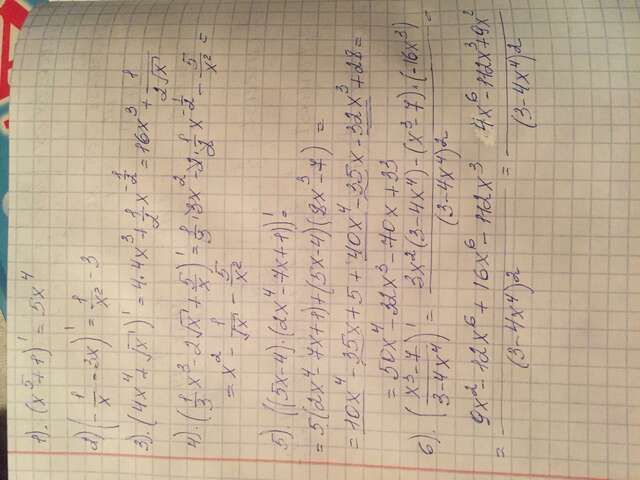 1). (x⁵+1)' = 5x⁴
2) (-1/x - 3x)' = 1/x² - 3
3). (4x⁴+√x)' = 4·4x³ + 1/2 x^(-1/2) = 16x³ + 1/(2√x)
4). (1/3 x³ - 2√x + 5/x)' = 1/3·3x² - 2·1/2 x^(-1/2) - 5/x² =
= x² - 1/√x - 5/x²
5). ((5x-4)·(2x⁴-7x+1))' =
= 5(2x⁴-7x+1)+(5x-4)(8x³-7) =
= 10x⁴-35x+5+40x⁴-35x-32x³+28 =
= 50x⁴-32x³-70x+33
6). ((x³-7)/(3-4x⁴))' = (3x²(3-4x⁴)-(x³-7)·(-16x³))/(3-4x⁴)² =
= (9x²-12x⁶+16x⁶-112x³)/(3-4x⁴)² = (4x⁶-112x³+9x²)/(3-4x⁴)²